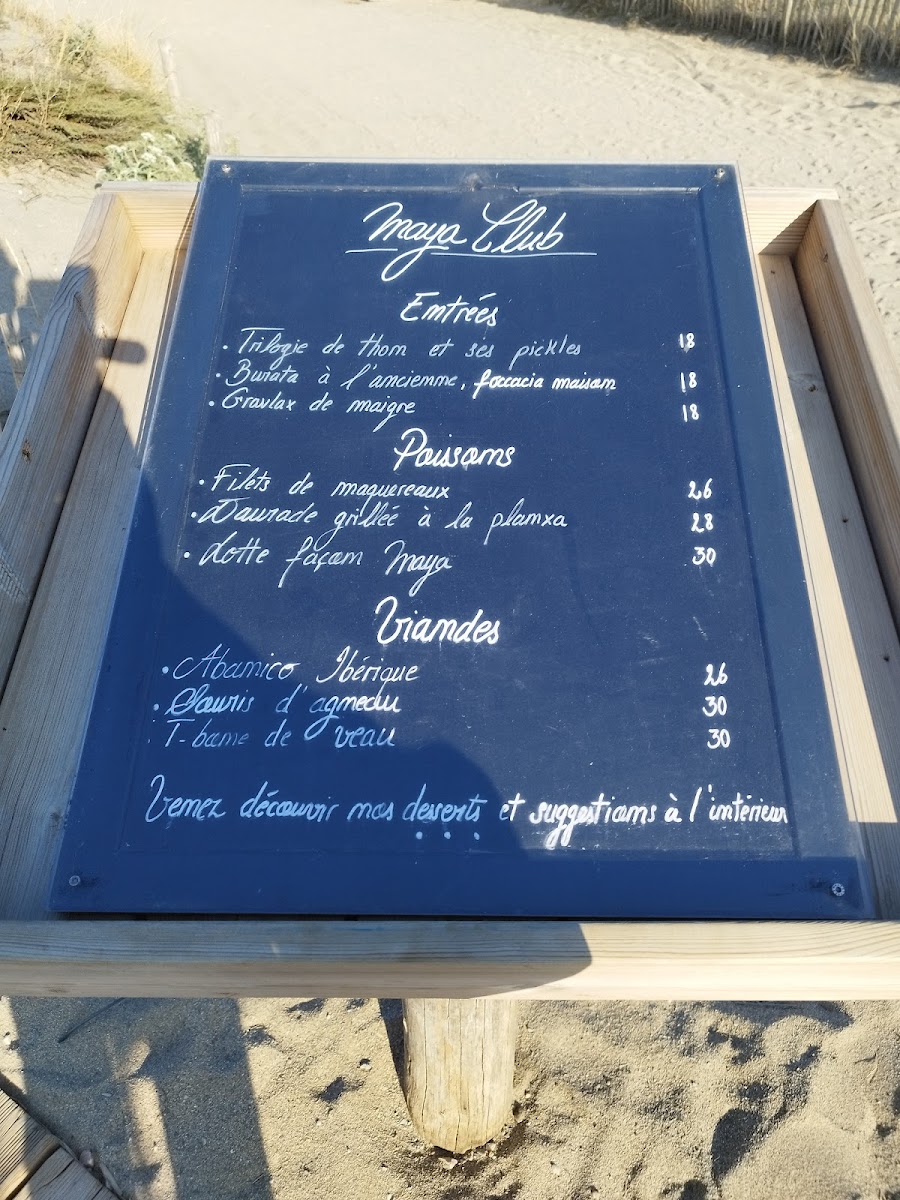 Maya Club
Entrées
• Trilogie de thon et ses pickles 18
• Burata à l'ancienne, foccacia maison 18
• Gravlax de maigre 18
Poissons
• Filets de maquereaux 26
• Daurade grillée à la planxa 28
• Lotte façon Maya 30
Viandes
• Abanico Ibérique 26
• Souris d'agneau 30
T-bone de veau 30
Venez découvrir nos desserts et suggestions à l'intérieur
• • •